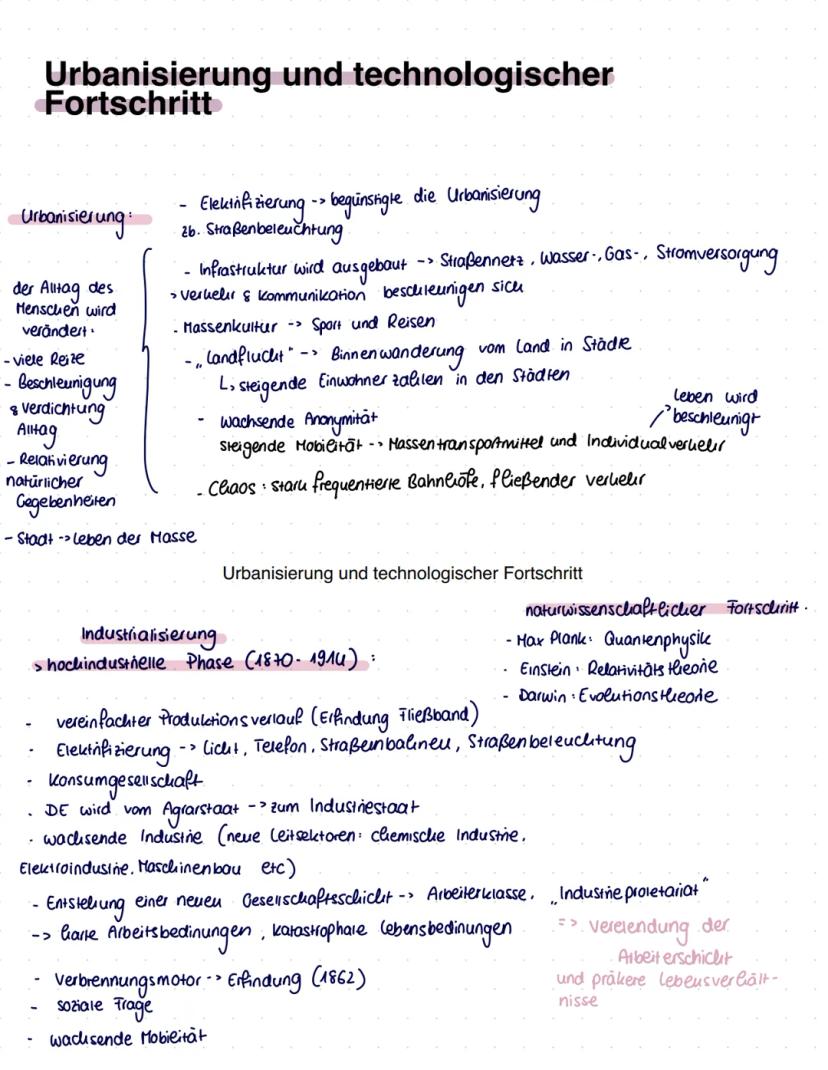 Urbanisierung und technologischer
Fortschritt
Urbanisierung:
- Elektrifizierung -> begünstigte die Urbanisierung
zb. Straßenbeleuchtung
der Alltag des
Menschen wird
verändert:
- viele Reize
- Beschleunigung
& Verdichtung
Alltag
- Relativierung
natürlicher
Gegebenheiten
- Stadt -> Leben der Masse
- Infrastruktur wird ausgebaut -> Straßennetz, Wasser-, Gas-, Stromversorgung
> Verkehr & Kommunikation beschleunigen sich
- Massenkultur -> Sport und Reisen
- „Landflucht" -> Binnenwanderung vom Land in Städte
L> steigende Einwohnerzahlen in den Städten
- wachsende Anonymität
steigende Mobilität -> Massentransportmittel und Individualverkehr
Leben wird
beschleunigt
- Chaos: stark frequentierte Bahnhöfe, fließender verkehr
Urbanisierung und technologischer Fortschritt
naturwissenschaftlicher Fortschritt.
- Max Plank: Quantenphysik
- Einstein: Relativitätstheorie
- Darwin: Evolutionstheorie
Industrialisierung
> hochindustrielle Phase (1870-1914):
- vereinfachter Produktionsverlauf (Erfindung Fließband)
- Elektrifizierung -> Licht, Telefon, Straßeinbahnen, Straßenbeleuchtung
- Konsumgesellschaft
- DE wird vom Agrarstaat -> zum Industriestaat
- wachsende Industrie (neue Leitsektoren: chemische Industrie,
Elektroindustrie, Maschinenbau etc)
- Entstehung einer neuen Gesellschaftsschicht -> Arbeiterklasse, „Industrieproletariat"
-> harte Arbeitsbedinungen, katastrophale Lebensbedinungen
=> Verelendung der
Arbeiterschicht
und präkere Lebensverhält-
nisse
- Verbrennungsmotor -> Erfindung (1862)
- soziale Frage
- wachsende Mobilität